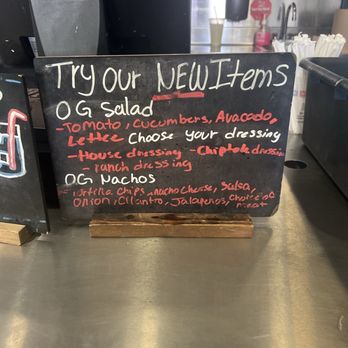 Try our NEW Items
OG Salad
- Tomato, Cucumbers, Avacado,
Lettce Choose your dressing
- House dressing - Chiptole dressing
- ranch dressing
OG Nachos
- tortilla chips, nacho cheese, Salsa,
Onion, Cilantro, Jalapenos, choice of
meat